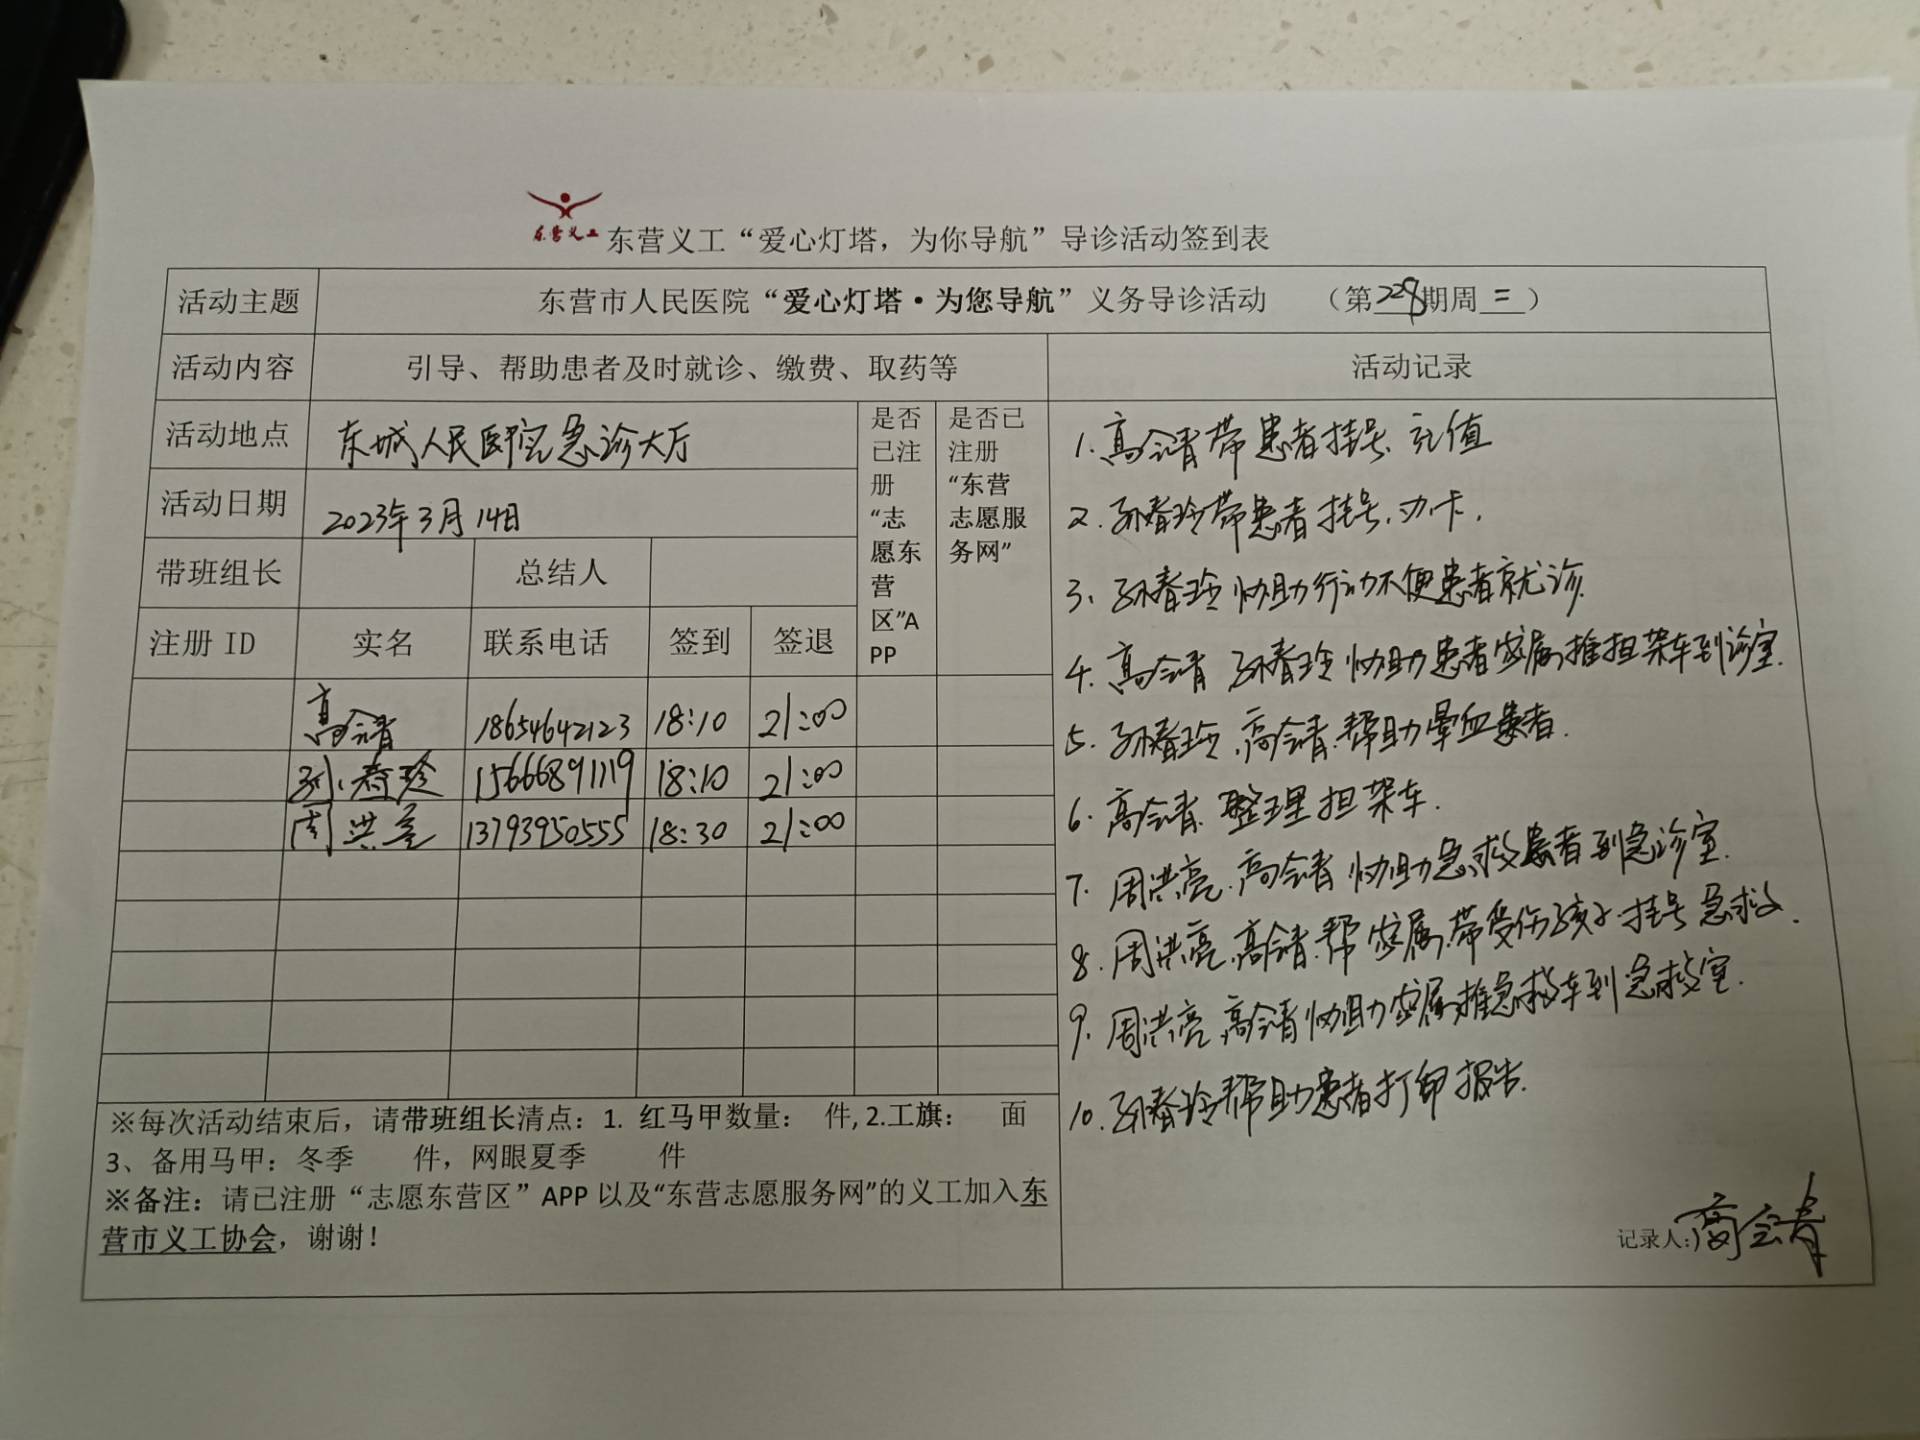 东营义工
东营义工“爱心灯塔，为你导航”导诊活动签到表
活动主题
东营市人民医院“爱心灯塔·为您导航”义务导诊活动 （第228期周二）
活动内容
引导、帮助患者及时就诊、缴费、取药等
活动记录
活动地点
东城人民医院急诊大厅
是否
已注
册
“志
愿东
营
区”A
PP
是否已
注册
“东营
志愿服
务网”
活动日期
2023年3月14日
带班组长 总结人
注册 ID 实名 联系电话 签到 签退
高会青 18654642123 18:10 21:00
孙春玲 15666891119 18:10 21:00
周洪亮 13793950555 18:30 21:00
1. 高会青带患者挂号、充值
2. 孙春玲带患者挂号、办卡.
3、孙春玲协助行动不便患者就诊.
4. 高会青 孙春玲协助患者家属推担架车到诊室.
5. 孙春玲、高会青.帮助晕血患者.
6. 高会青.整理担架车.
7. 周洪亮.高会青协助急救患者到急诊室.
8. 周洪亮.高会青.帮家属.带受伤孩子.挂号急救.
9. 周洪亮.高会青协助家属推急救车到急救室.
10. 孙春玲帮助患者打印报告.
※每次活动结束后，请带班组长清点：1. 红马甲数量： 件, 2.工旗： 面
3、备用马甲：冬季 件，网眼夏季 件
※备注：请已注册“志愿东营区”APP 以及“东营志愿服务网”的义工加入东
营市义工协会，谢谢！
记录人:高会青